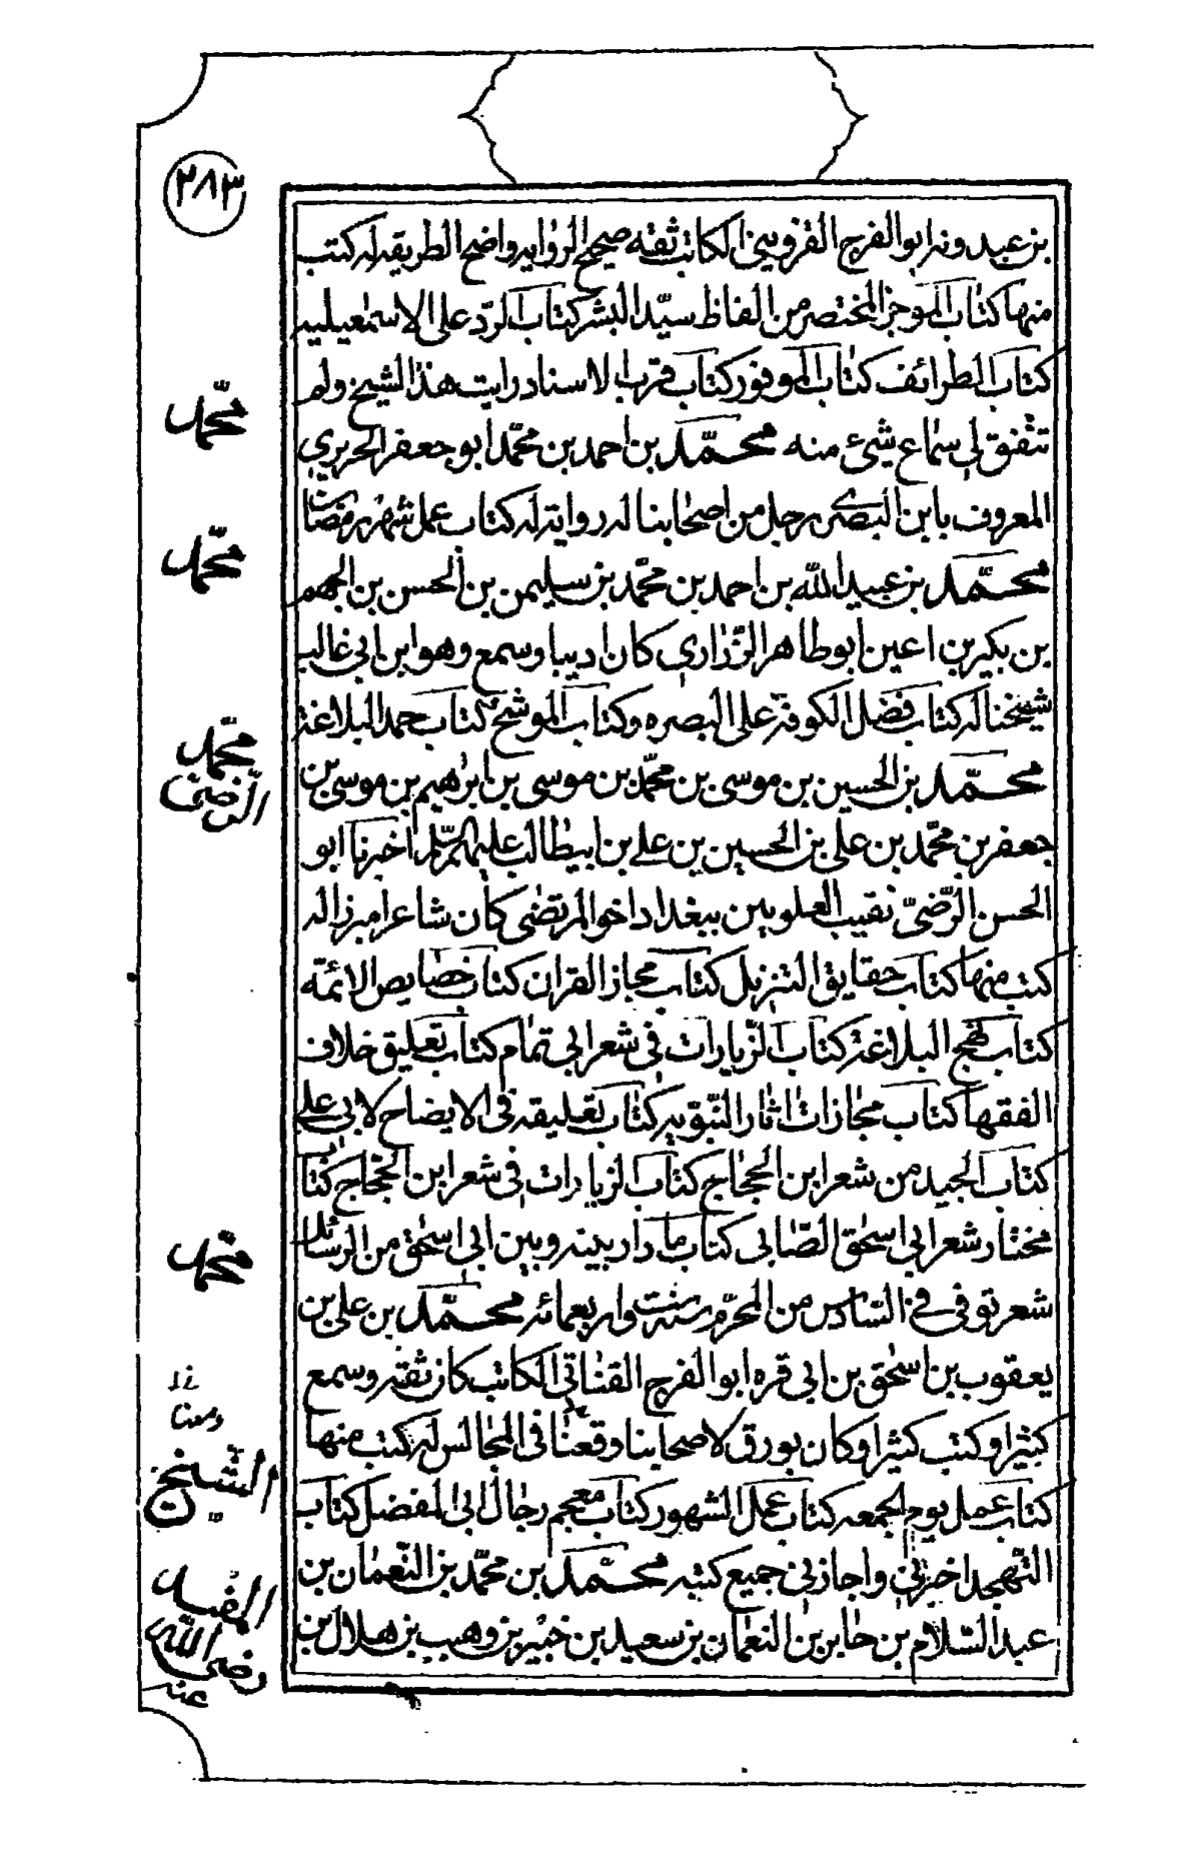 ٢٨٣
بن عبدونه ابو الفرج القزويني الكاتب ثقه صحيح الروايه واضح الطريقه له كتب
منها كتاب الموجز المختصر من الفاظ سيّد البشر كتاب الردّ على الاسمعيلييه
كتاب الطرائف كتاب الموفور كتاب قرب الاسناد رايت هذا الشيخ ولم
تتفق لى سماع شىء منه محمّد بن احمد بن محمّد ابو جعفر الحريري
المعروف بابن البصرى رجل من اصحابنا له رواية له كتاب عمل شهر رمضان
محمّد بن عبيد الله بن احمد بن محمّد بن سليمن بن الحسن بن الجهم
بن بكير بن اعين ابو طاهر الزّراري كان اديبا وسمع وهو ابن ابى غالب
شيخنا له كتاب فضل الكوفة على البصره وكتاب الموشح كتاب حمد البلاغة
محمّد بن الحسين بن موسى بن محمّد بن موسى بن ابرهيم بن موسى بن
جعفر بن محمّد بن على بن الحسين بن على بن ابيطالب عليهم السّلم اخبرنا ابو
الحسن الرّضىّ نقيب العلويين ببغداد اخو المرتضى كان شاعرا مبرزا له
كتب منها كتاب حقايق التنزيل كتاب مجاز القران كتاب خصايص الائمّه
كتاب نهج البلاغة كتاب الزّيارات فى شعر ابى تمام كتاب تعليق خلاف
الفقها كتاب مجازات اثار النّبوّيه كتاب تعليقه فى الايضاح لابى على
كتاب الجيد من شعر ابن الحجاج كتاب الزيادات فى شعر ابن الحجاج كتا
مختار شعر ابى اسحق الصّابى كتاب ما دار بينه وبين ابى اسحق من الرسائل
شعر توفى فى السّادس من المحرّم سنة ست واربعمائه محمّد بن على بن
يعقوب بن اسحق بن ابى قره ابو الفرج القنانى الكاتب كان ثقة وسمع
كثيرا وكتب كثيرا وكان يورق لاصحابنا ومعنا فى المجالس له كتب منها
كتاب عمل يوم الجمعه كتاب عمل الشهور كتاب معجم رجال ابى المفضل كتاب
التّهجد اخبرنى واجازنى جميع كتبه محمّد بن محمّد بن النّعمان بن
عبد السّلام بن جابر بن النعمان بن سعيد بن جبير بن وهيب بن هلال بن
محمّد
محمّد
محمّد
الرّضىّ
محمّد
ومعنا
الشّيخ
المفيد
رضى الله
عنه